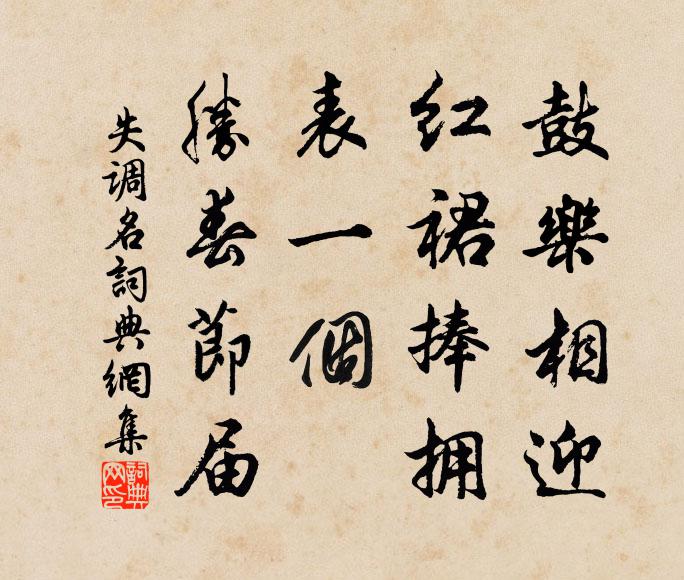 鼓樂相迎
红裙捧拥
表一個
勝春節届
失调名詞典網集
詞典网印